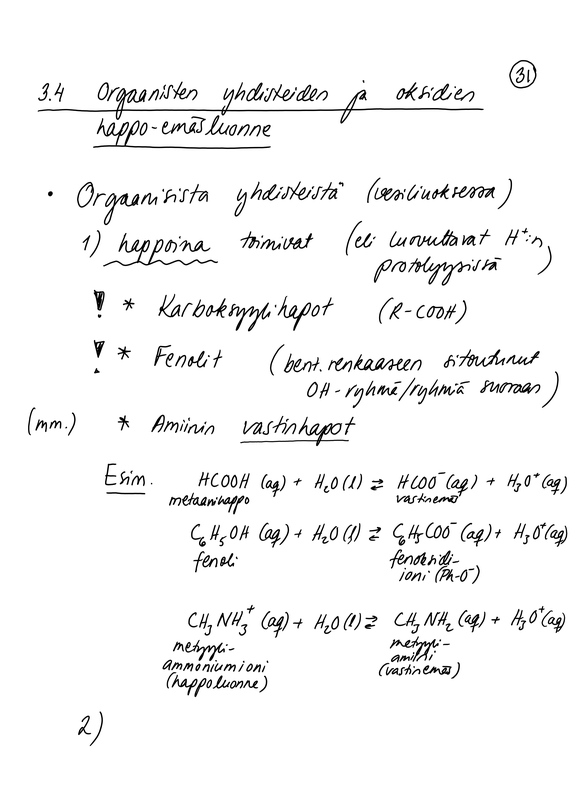 31
3.4 Orgaanisten yhdisteiden ja oksidien
happo-emäsluonne
• Orgaanisista yhdisteistä (vesiliuoksessa)
1) happoina toimivat (eli luovuttavat H⁺:n
protolyysissä)
! * Karboksyylihapot (R-COOH)
! * Fenolit (bent.renkaaseen sitoutunut
OH-ryhmä/ryhmiä suoraan)
(mm.) * Amiinin vastinhapot
Esim. HCOOH (aq) + H₂O(l) ⇄ HCOO⁻(aq) + H₃O⁺(aq)
metaanihappo vastinemäs
C₆H₅OH (aq) + H₂O(l) ⇄ C₆H₅COO⁻(aq) + H₃O⁺(aq)
fenoli fenoksidi-
ioni (Ph-O⁻)
CH₃NH₃⁺(aq) + H₂O(l) ⇄ CH₃NH₂(aq) + H₃O⁺(aq)
metyyli- metyyli-
ammoniumioni amiini
(happoluonne) (vastinemäs)
2)